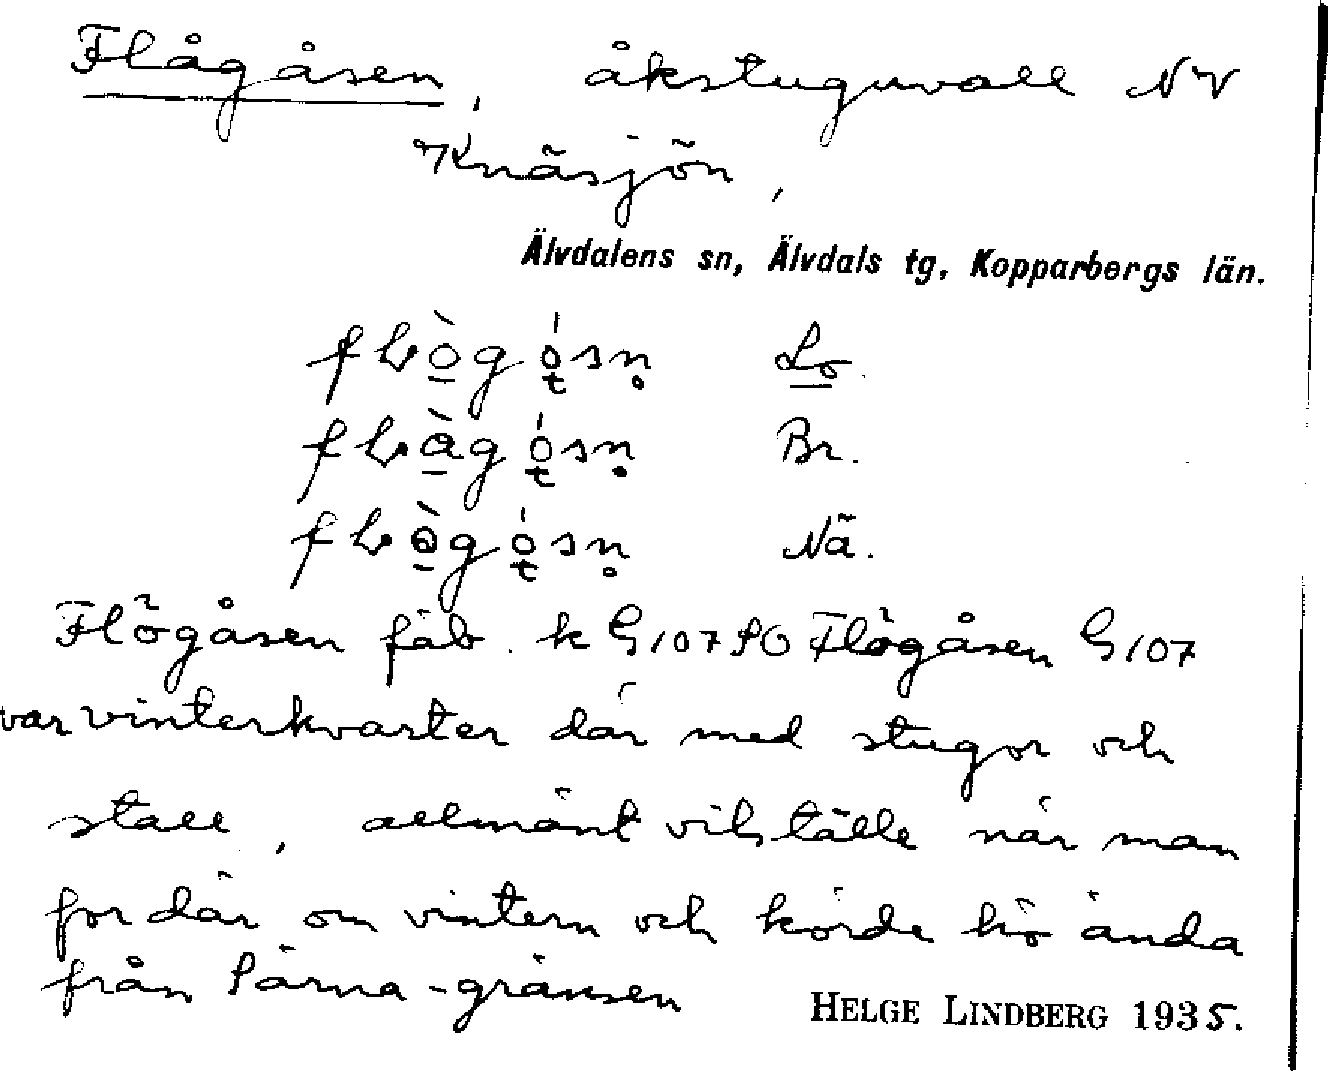 Flågåsen, åkstuguvall NV
Knäsjön,
Älvdalens sn, Älvdals tg, Kopparbergs län.
Lo.
Br.
Nä.
Flögåsen fäb. k G107 SO Flögåsen G107
var vinterkvarter där med stugor och
stall, allmänt vilställe när man
for där om vintern och körde hö ända
från Särna-gränsen
HELGE LINDBERG 1935.